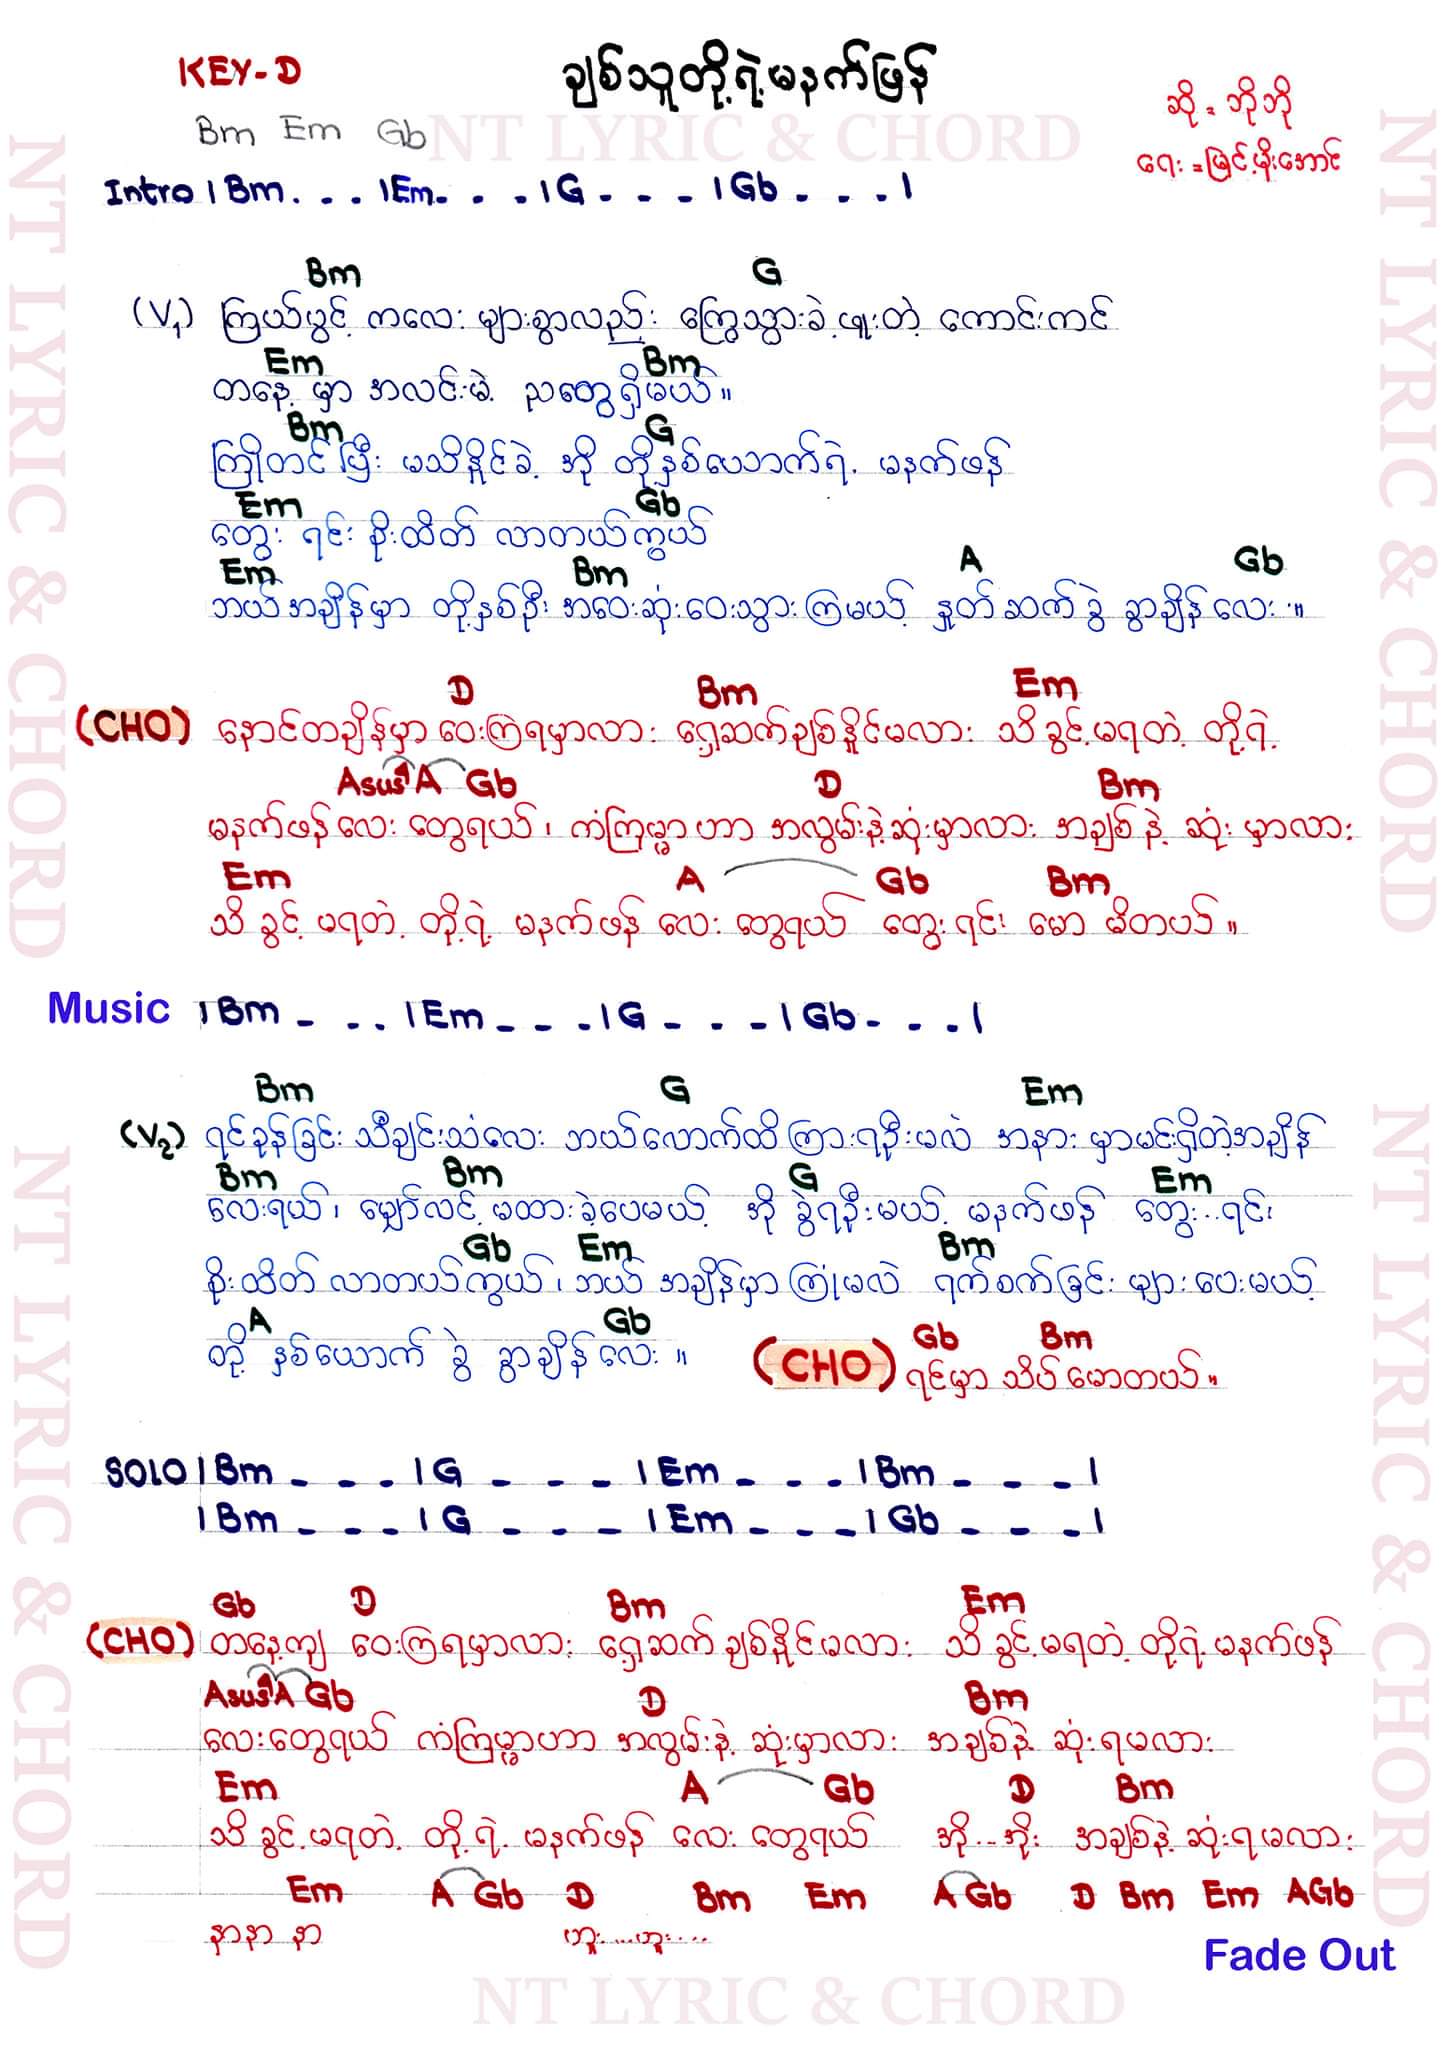 KEY-D
ချစ်သူတို့ရဲ့မနက်ဖြန်
ဆို = ဘိုဘို
ရေး = မြင့်မိုးအောင်
Bm Em Gb
NT LYRIC & CHORD
Intro | Bm . - - | Em - - - . | G - - - | Gb - - - |
Bm G
(V1) ကြယ်ပွင့် ကလေး များစွာလည်း ကြွေသွားခဲ့ ဖူးတဲ့ ကောင်းကင်
Em Bm
တနေ့ မှာ အလင်းမဲ့ ညတွေရှိမယ်။
Bm G
ကြိုတင် ပြီး မသိနိုင်ခဲ့ အို တို့နှစ်ယောက်ရဲ့ မနက်ဖန်
Em Gb
တွေး ရင်း စိုးထိတ် လာတယ်ကွယ်
Em Bm A Gb
ဘယ်အချိန်မှာ တို့နှစ်ဦး အဝေးဆုံးဝေးသွားကြမယ့် နှုတ်ဆက်ခွဲ ခွာချိန်လေး ။
D Bm Em
(CHO) နောင်တချိန်မှာ ဝေးကြရမှာလား ရှေ့ဆက်ချစ်နိုင်မလား သိခွင့်မရတဲ့ တို့ရဲ့
Asus4 A Gb D Bm
မနက်ဖန်လေး တွေရယ်၊ ကံကြမ္မာဟာ အလွမ်းနဲ့ဆုံးမှာလား အချစ်နဲ့ ဆုံး မှာလား
Em A Gb Bm
သိခွင့် မရတဲ့ တို့ရဲ့ မနက်ဖန် လေး တွေရယ် တွေး ရင်း မော မိတယ်။
Music | Bm - - . | Em - - . | G - - - | Gb - - - |
Bm G Em
(V2) ရင်ခုန်ခြင်း သီချင်းသံလေး ဘယ်လောက်ထိကြားရဦးမလဲ အနား မှာမင်းရှိတဲ့အချိန်
Bm Bm G Em
လေးရယ်၊ မျှော်လင့် မထားခဲ့ပေမယ့် အို ခွဲရဦးမယ့် မနက်ဖန် တွေး..ရင်း
Gb Em Bm
စိုးထိတ် လာတယ်ကွယ်၊ ဘယ် အချိန်မှာ ကြုံမလဲ ရက်စက်ခြင်း များပေးမယ့်
A Gb
တို့ နှစ်ယောက် ခွဲ ခွာချိန်လေး ။
Gb Bm
(CHO) ရင်မှာ သိပ်မောတယ်။
SOLO | Bm - - - | G - - - | Em - - - | Bm - - - |
| Bm - - - | G - - - | Em - - - | Gb - - - |
Gb D Bm Em
(CHO) တနေ့ကျ ဝေးကြရမှာလား ရှေ့ဆက် ချစ်နိုင်မလား သိခွင့်မရတဲ့ တို့ရဲ့ မနက်ဖန်
Asus4 A Gb D Bm
လေးတွေရယ် ကံကြမ္မာဟာ အလွမ်းနဲ့ ဆုံးမှာလား အချစ်နဲ့ ဆုံးရမလား
Em A Gb D Bm
သိခွင့်မရတဲ့ တို့ရဲ့ မနက်ဖန် လေး တွေရယ် အို...အိုး အချစ်နဲ့ ဆုံးရမလား
Em A Gb D Bm Em A Gb D Bm Em A Gb
နာနာ နာ ဟူး....ဟူး....
Fade Out
NT LYRIC & CHORD
NT LYRIC & CHORD
NT LYRIC & CHORD
NT LYRIC & CHORD
NT LYRIC & CHORD